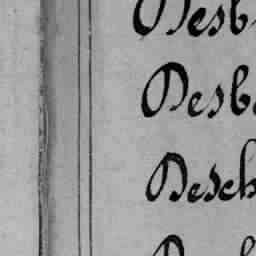 Desb
Desb
Desch